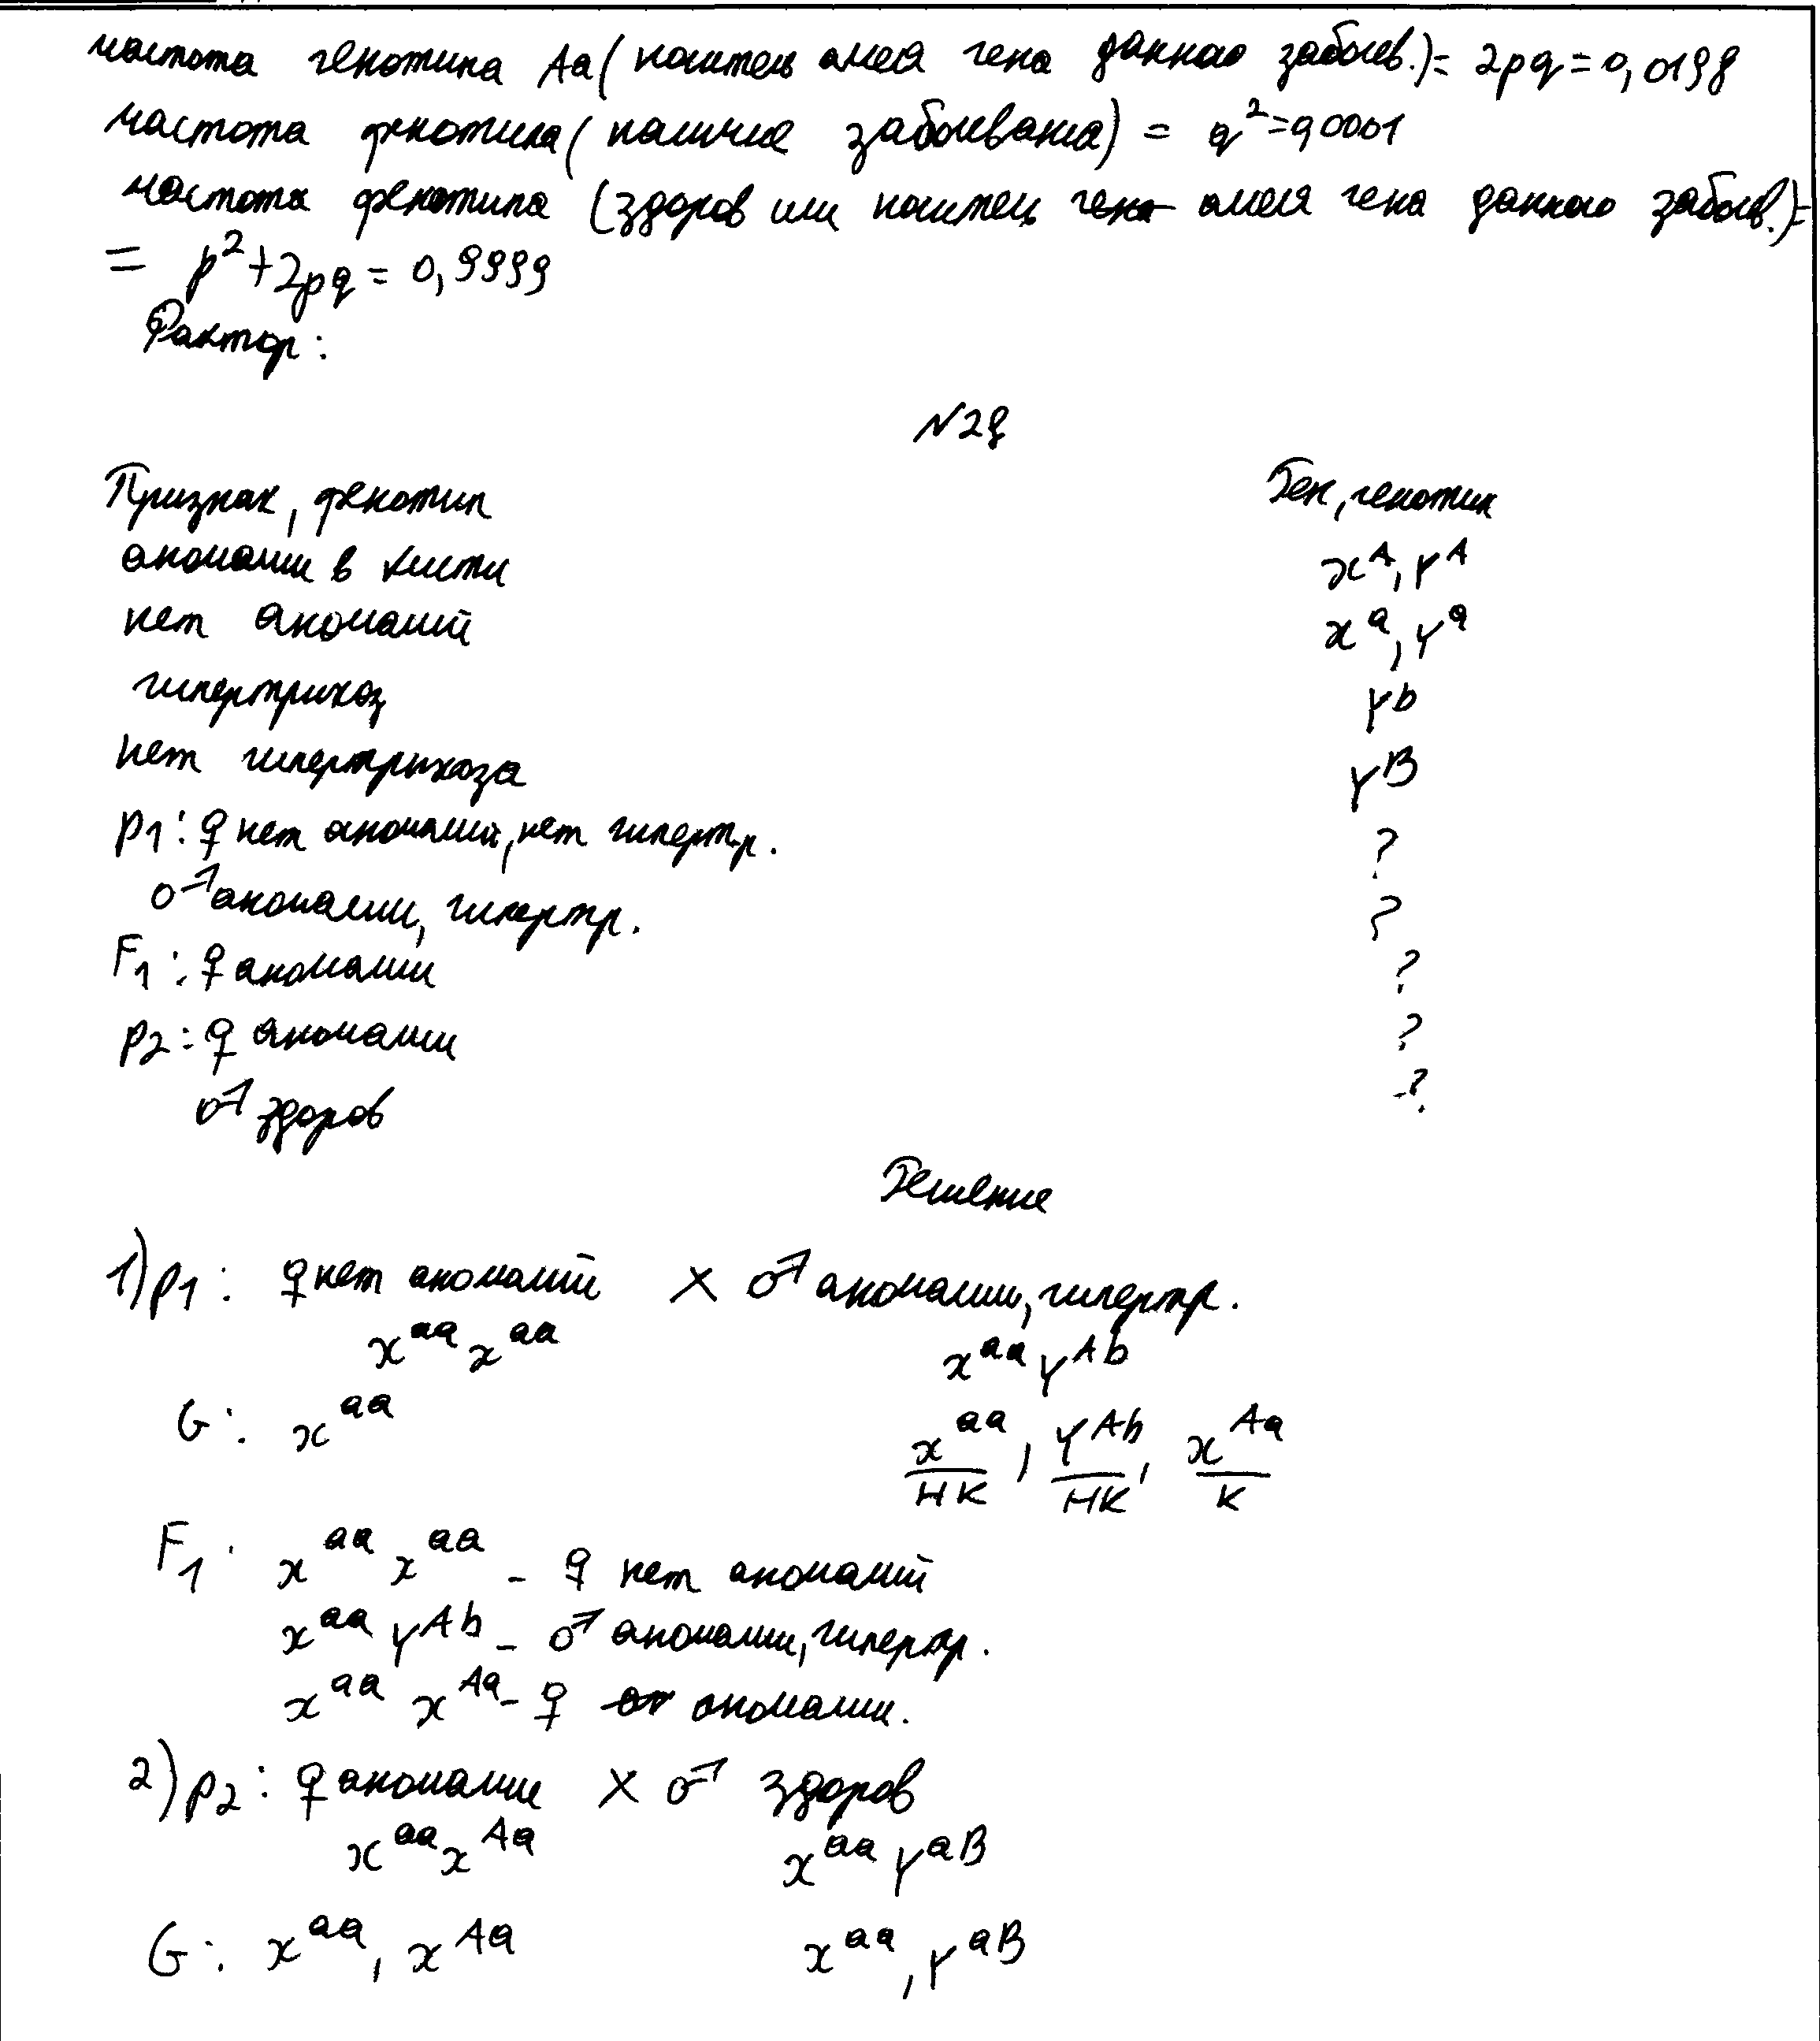 частота генотипа Aa (носитель аллеля гена данного заболев.) = 2pq = 0,0198
частота фенотипа (наличие заболевания) = q² = 0,0001
частота фенотипа (здоров или носитель аллеля гена данного заболев.) =
= p² + 2pq = 0,9999
Фактор:
N28
Признак, фенотип Ген, генотип
аномалии в кисти x^A, Y^A
нет аномалий x^a, Y^a
гипертрихоз Y^b
нет гипертрихоза Y^B
P1: ♀ нет аномалий, нет гипертр. ?
♂ аномалии, гипертр. ?
F1: ♀ аномалии ?
P2: ♀ аномалии ?
♂ здоров ?
Решение
1) P1: ♀ нет аномалий X ♂ аномалии, гипертр.
x^aa x^aa x^aa Y^Ab
G: x^aa x^aa, Y^Ab, x^Aa
НК НК К
F1: x^aa x^aa - ♀ нет аномалий
x^aa Y^Ab - ♂ аномалии, гипертр.
x^aa x^Aa - ♀ аномалии.
2) P2: ♀ аномалии X ♂ здоров
x^aa x^Aa x^aa Y^aB
G: x^aa, x^Aa x^aa, Y^aB